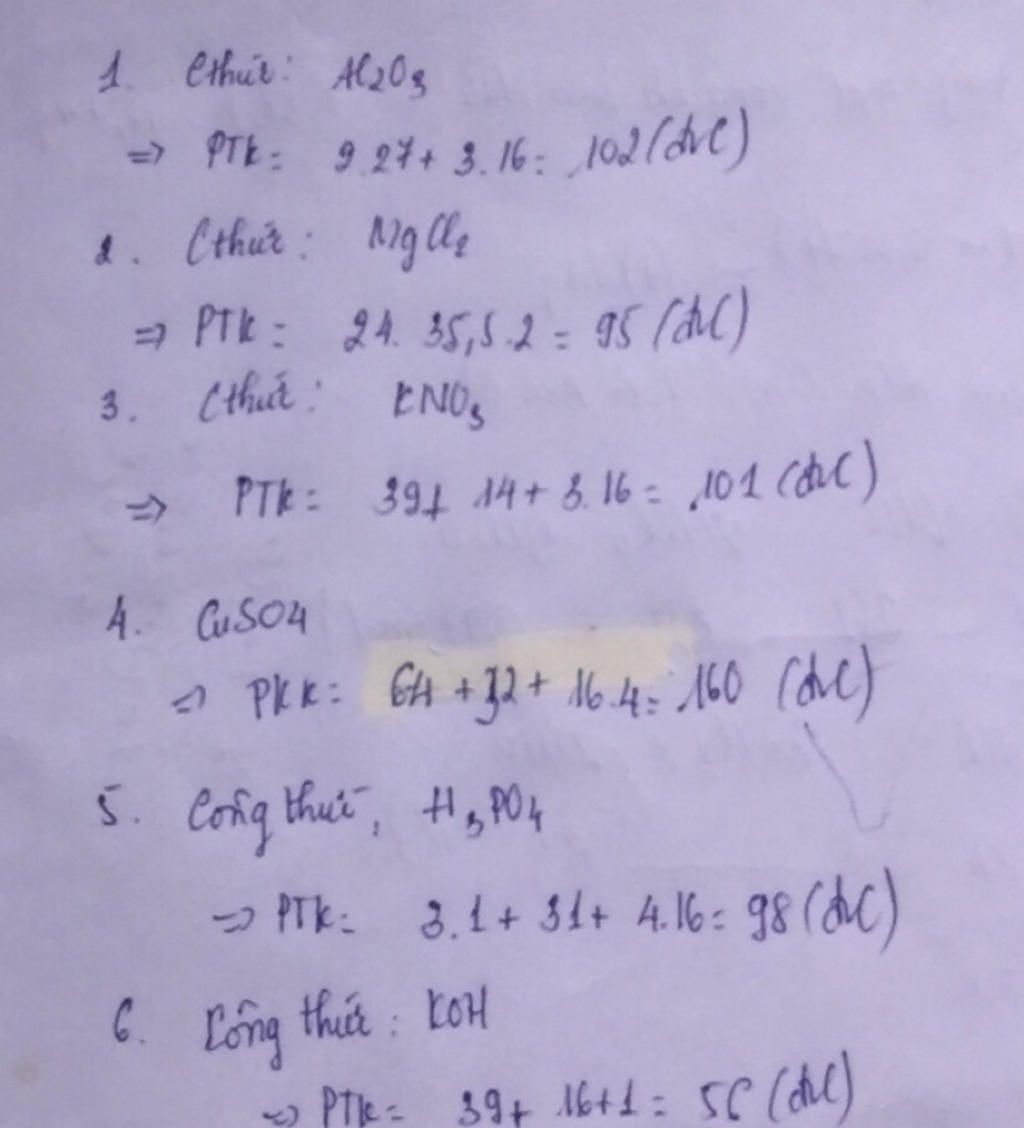 1. Cthức: Al2O3
=> PTK = 2.27 + 3.16 = 102 (đvC)
2. Cthức: MgCl2
=> PTK = 24. 35,5.2 = 95 (đvC)
3. Cthức: KNO3
=> PTK = 39+ 14 + 3.16 = 101 (đvC)
4. CuSO4
=> PKK = 64 + 32 + 16.4 = 160 (đvC)
5. Công thức, H3PO4
=> PTK = 3.1 + 31 + 4.16 = 98 (đvC)
6. Công thức: KOH
=> PTK = 39 + 16+1 = 56 (đvC)